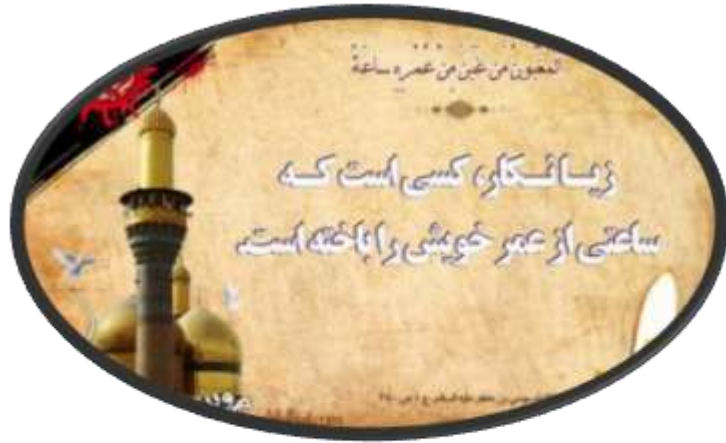 المغبون من غبن من عمره ساعة
زیانکار، کسی است که
ساعتی از عمر خویش را باخته است.